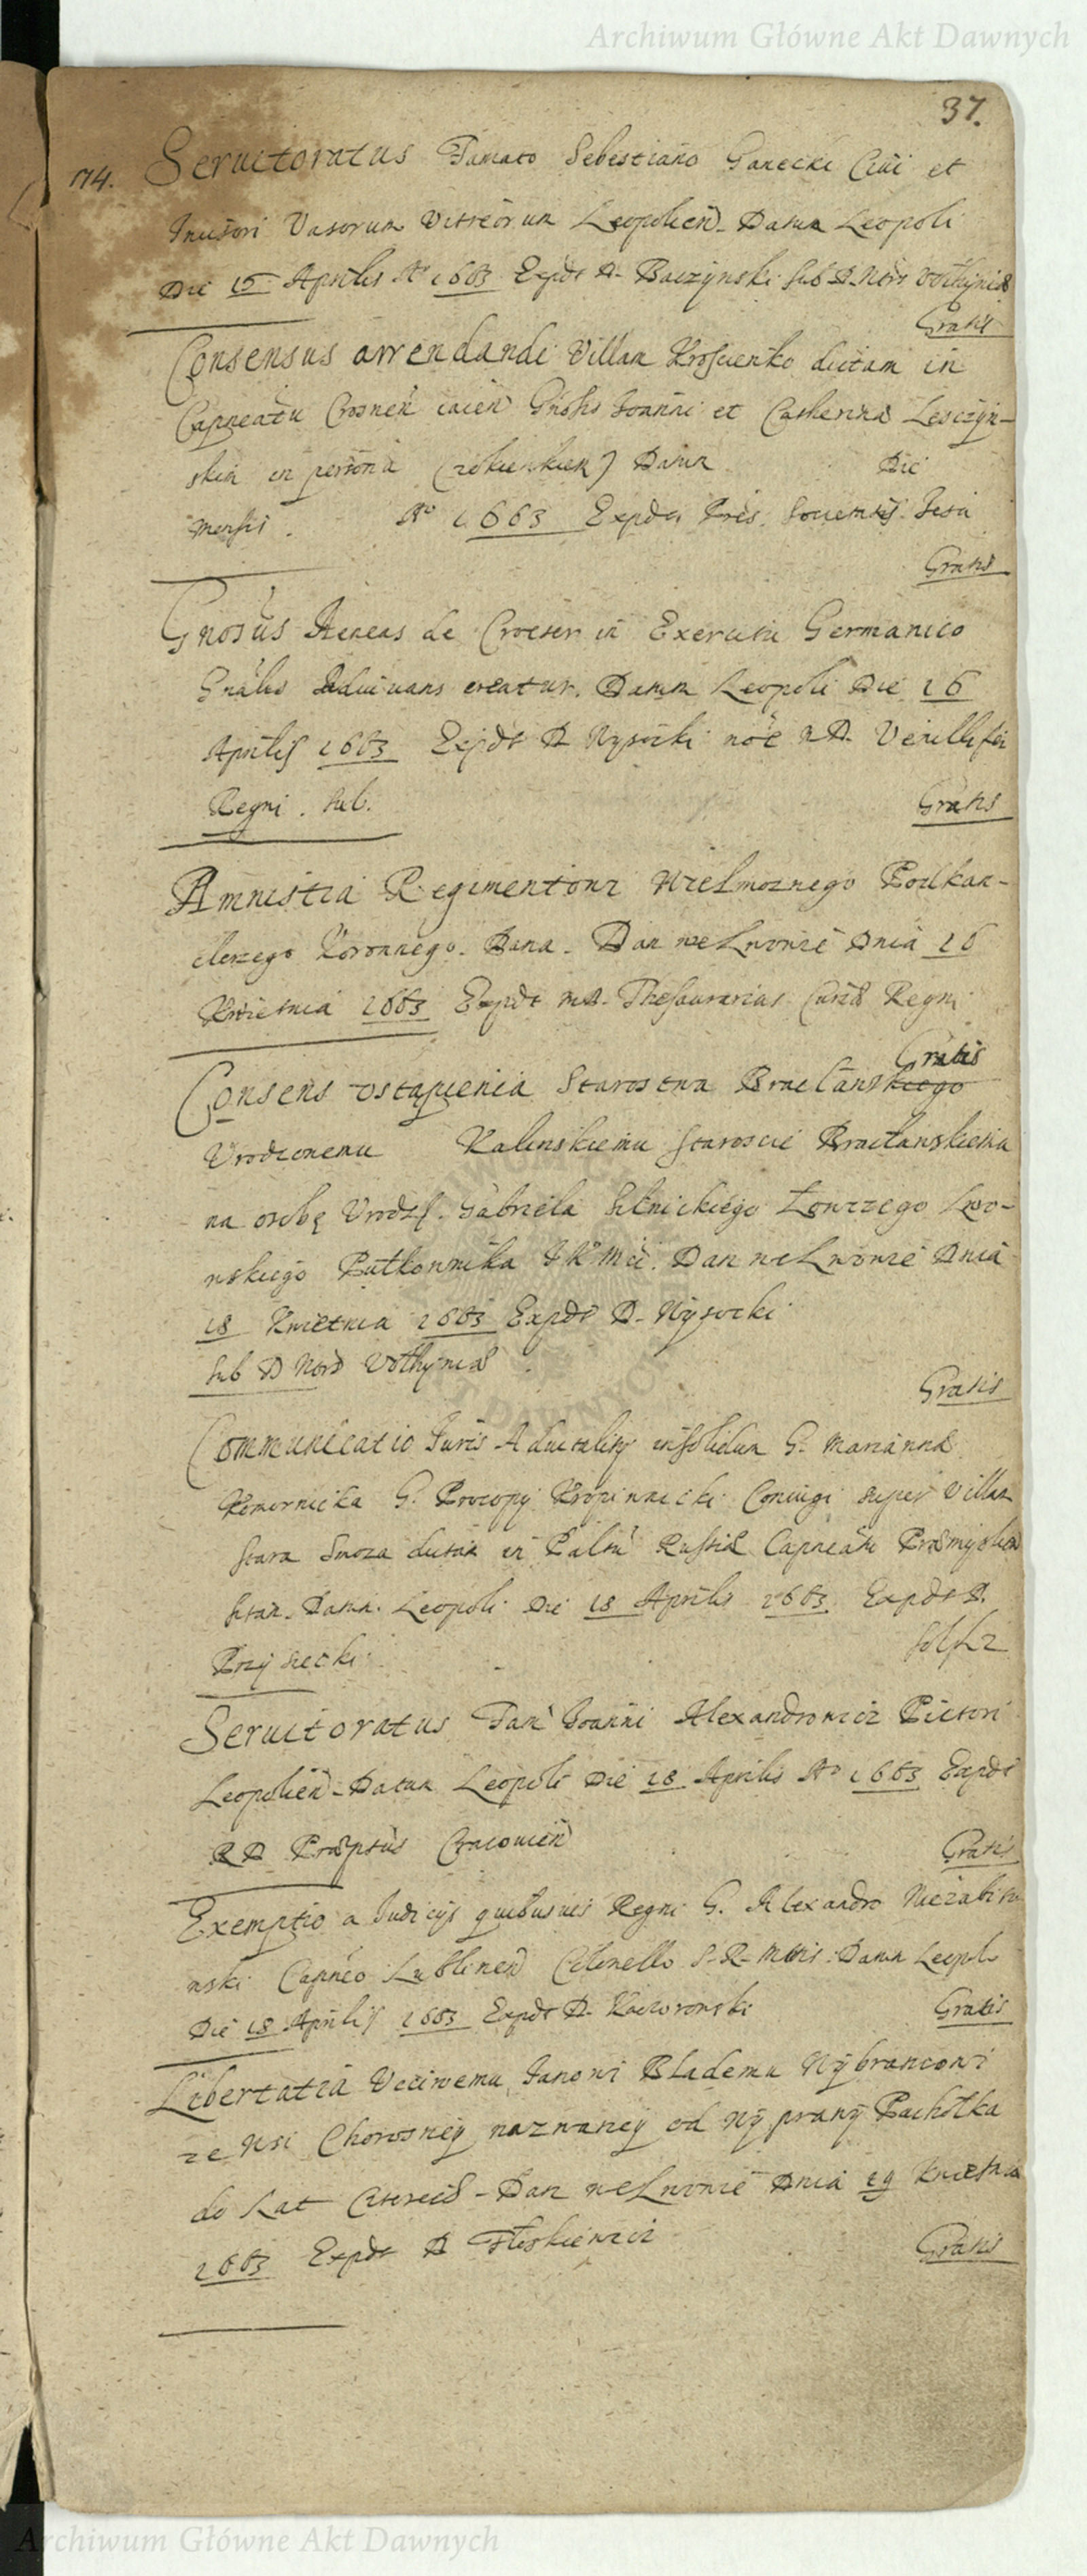 Archiwum Główne Akt Dawnych
37.
174. Seruitoratus Famato Sebestiano Garecki Ciui et
Incisori Vasorum Vitreorum Leopolien. Datum Leopoli
Die 15 Aprilis Aº 1663 Expdt D. Baczynski sub D. Nors Vołhyniæ
Gratis
Consensus arrendandi Villam Krościenko dictam in
Capneatu Crosnen iacen Gnosis Joanni et Catherinæ Leszczyn-
skim in persona Datum Die
Mensis. Aº 1663 Expdt Pres. Societatis Jesu
Gratis
Gnosus Aeneas de Croeser in Exercitu Germanico
Gnalis Adiuuans creatur. Datum Leopoli Die 16
Aprilis 1663 Expdt D Wysocki noe R D. Vexilliferi
Regni. sub.
Gratis
Amnistia Regimentowi Wielmoznego Podkan-
clerzego Koronnego. Dana. Dan we Lwowie Dnia 16
Kwietnia 1663 Expdt m D. Thesaurarius Curiæ Regni
Gratis
Consens vstąpienia Starostwa Bracłanskiego
Vrodzonemu Kalinskiemu Staroscie Bracłanskiemu
na osobę Vrodz. Gabriela Silnickiego Łowczego Lwo-
wskiego Pułkownika JKMci. Dan we Lwowie Dnia
18 Kwietnia 1663 Expdt D. Wysocki
sub D Nors Vołhyniæ
Gratis
Communicatio Juris Aduitality insolidum G. Mariannæ
Komornicka G. Procopy Kropiwnicki Coniugi super Villam
Stara Smoza dictam in Paltu Russiæ Capneatu Præmyslien
sitam. Datum. Leopoli Die 18 Aprilis 1663. Expdt D.
Przysiecki
Seruitoratus Fam Joanni Alexandrowicz Pictori
Leopolien. Datum Leopoli Die 18 Aprilis Aº 1663 Expdt
R D Præptus Cracouien
Gratis
Exemptio a Judicys quibusuis Regni G. Alexandro Niezabito
wski Capneo Lublinen Colonello S. R. Mttis. Datum Leopoli
Die 18 Aprilis 1663 Expdt D. Kaczorowski
Gratis
Libertatia Vcciwemu Janowi Blademu Wybrancowi
ze Wsi Chorosney naznaney od Wyprawy Pachołka
do Lat Czterech. Dan we Lwowie Dnia 19 Kwietnia
1663 Expdt D
Gratis
Archiwum Główne Akt Dawnych